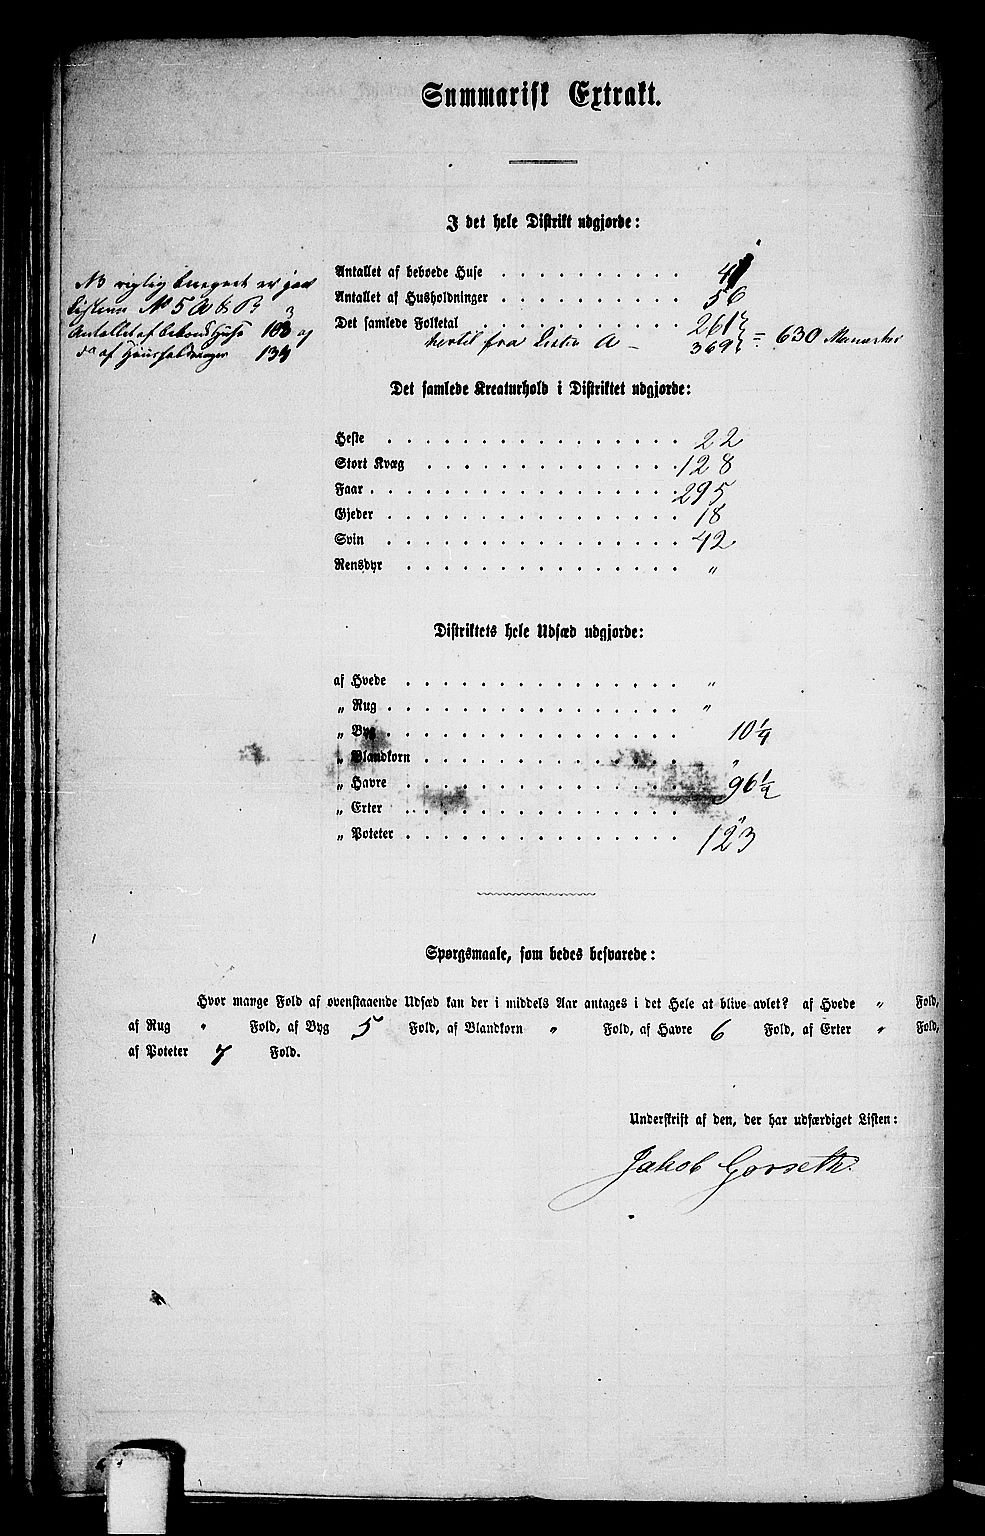 Summarisk Extrakt.
I det hele Distrikt udgjorde:
Antallet af beboede Huse . . . . . . . . . . 4
Antallet af Husholdninger . . . . . . . . . . 56
Det samlede Folketal . . . . . . . . . . . 261
hertil fra Liste A – 369 = 630 Mennesker
NB rigtig beregnet er paa
Listerne No 5 A & B
Antallet af beboede Huse 103 og
do af Huusholdninger 134
Det samlede Kreaturhold i Distriktet udgjorde:
Heste . . . . . . . . . . . . . . . . 22
Stort Kvæg . . . . . . . . . . . . . . 128
Faar . . . . . . . . . . . . . . . . . 295
Gjeder . . . . . . . . . . . . . . . . 18
Svin . . . . . . . . . . . . . . . . 42
Rensdyr . . . . . . . . . . . . . . . "
Distriktets hele Udsæd udgjorde:
af Hvede . . . . . . . . . . . . . . . "
„ Rug . . . . . . . . . . . . . . . . "
„ Byg . . . . . . . . . . . . . . . . 10 1/4
„ Blandkorn . . . . . . . . . . . . . . "
„ Havre . . . . . . . . . . . . . . . 96 1/2
„ Erter . . . . . . . . . . . . . . . "
„ Poteter . . . . . . . . . . . . . . . 123
Spørgsmaale, som bedes besvarede:
Hvor mange Fold af ovenstaaende Udsæd kan der i middels Aar antages i det Hele at blive avlet? af Hvede " Fold,
af Rug " Fold, af Byg 5 Fold, af Blandkorn " Fold, af Havre 6 Fold, af Erter " Fold,
af Poteter 7 Fold.
Underskrift af den, der har udfærdiget Listen:
Jakob Gorseth.